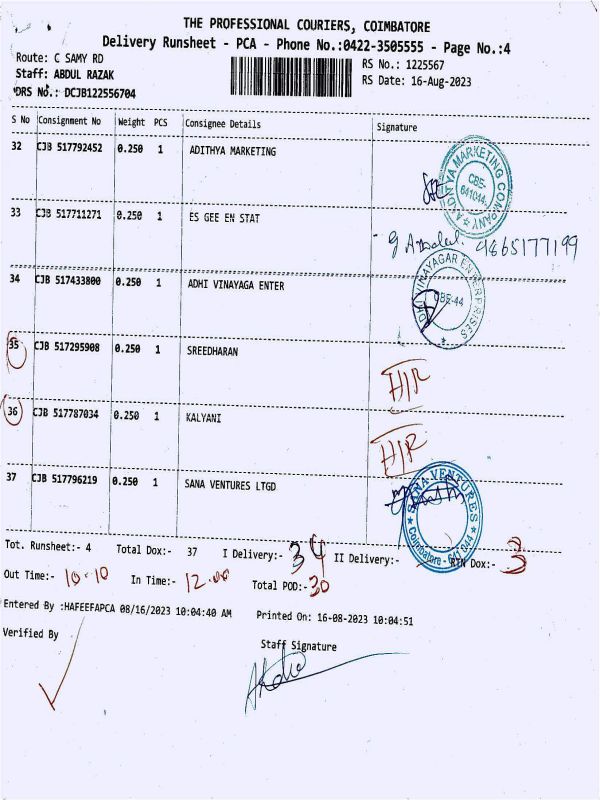 THE PROFESSIONAL COURIERS, COIMBATORE
Delivery Runsheet - PCA - Phone No.:0422-3505555 - Page No.:4
Route: C SAMY RD
RS No.: 1225567
Staff: ABDUL RAZAK
RS Date: 16-Aug-2023
DRS No.: DCJB122556704
S No Consignment No Weight PCS Consignee Details Signature
32 CJB 517792452 0.250 1 ADITHYA MARKETING
ADINYA MARKETING COMPANY
CBE-
641044.
33 CJB 517711271 0.250 1 ES GEE EN STAT
9865177199
34 CJB 517433800 0.250 1 ADHI VINAYAGA ENTER
ADHI VINAYAGAR ENTERPRISES
CBE-44
35 CJB 517295908 0.250 1 SREEDHARAN
H/R
36 CJB 517787034 0.250 1 KALYANI
H/R
37 CJB 517796219 0.250 1 SANA VENTURES LTGD
SANA VENTURES
Coimbatore - 641 044
Tot. Runsheet:- 4 Total Dox:- 37 I Delivery:- 34 II Delivery:- RTN Dox:- 3
Out Time:- 10.10 In Time:- 12.00 Total POD:- 30
Entered By :HAFEEFAPCA 08/16/2023 10:04:40 AM Printed On: 16-08-2023 10:04:51
Verified By
Staff Signature